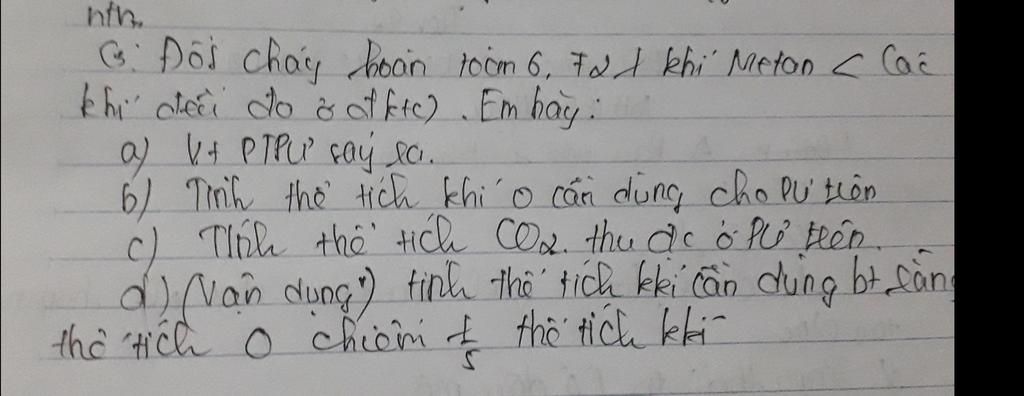 nth.
C3: Đốt cháy hoàn toàn 6,72 l khí Metan < Các
khí đều đo ở đktc). Em hãy:
a) Vt PTPƯ xảy ra.
b) Tính thể tích khí O cần dùng cho PƯ trên
c) Tính thể tích CO2. thu đc ở PƯ trên.
d) (Vận dụng) tính thể tích kkí cần dùng bt rằng
thể tích O chiếm 1/5 thể tích kkí